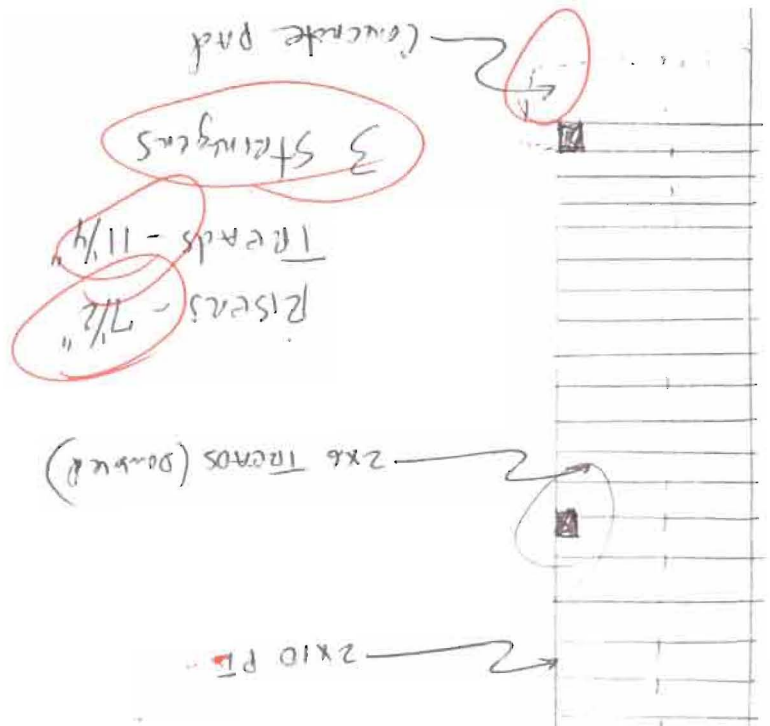 2x10 PT
2x6 TREADS (Doubled)
RISERS - 7 1/2"
TREADS - 11 1/4"
3 Stringers
Concrete pad